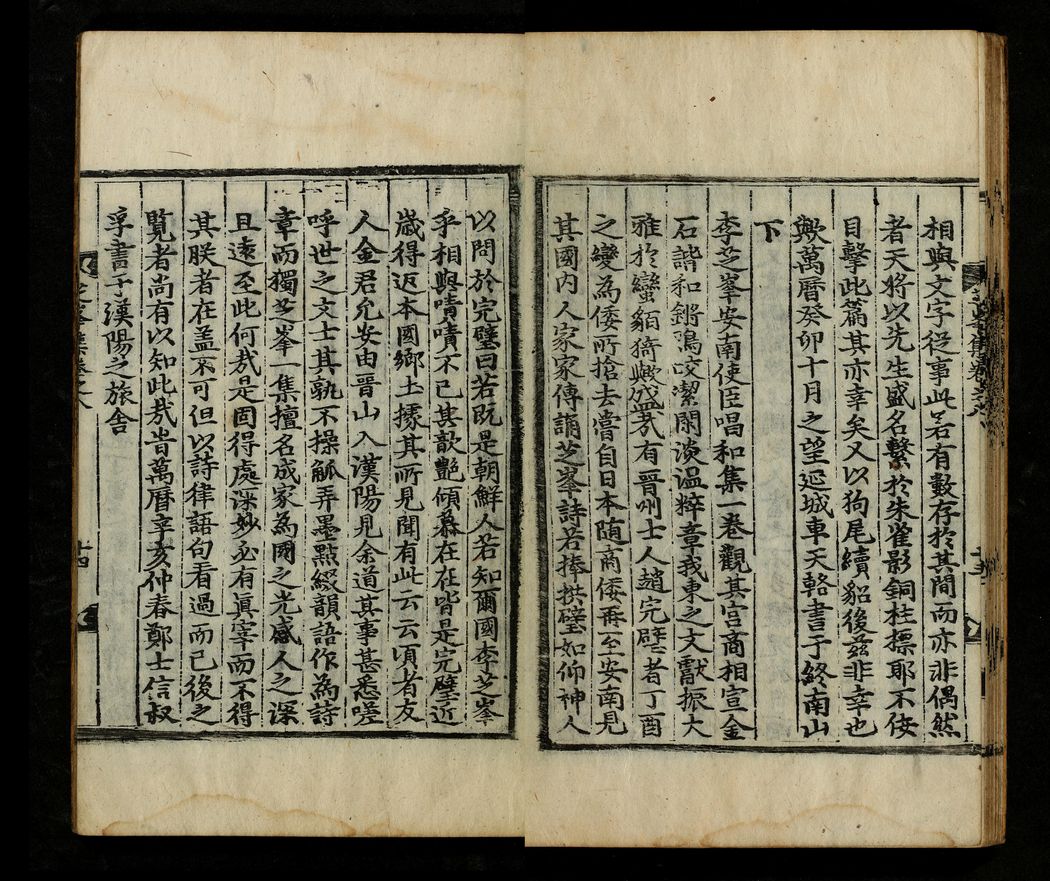 相與文字從事此若有數存於其間而亦非偶然
者天將以先生盛名繫於朱雀影銅柱標耶不佞
目擊此篇其亦幸矣又以狗尾續貂後玆非幸也
歟萬曆癸卯十月之望延城車天輅書于終南山
下
李芝峯安南使臣唱和集一卷觀其宮商相宣金
石諧和鏘鴻咬潔閑淡温粹章我東之文獻振大
雅於蠻貊猗歟盛㢤有晋州士人趙完璧者丁酉
之變為倭所搶去嘗自日本随商倭再至安南見
其國内人家家傳誦芝峯詩若捧拱璧如仰神人
以問於完璧曰若既是朝鮮人若知爾國李芝峯
乎相與嘖嘖不已其歆艶傾慕在在皆是完璧近
歲得返本國鄕土據其所見聞有此云云頃者友
人金君允安由晋山入漢陽見余道其事甚悉嗟
呼世之文士其孰不操觚弄墨點綴韻語作為詩
章而獨芝峯一集擅名成家為國之光感人之深
且遠至此何㢤是固得處深妙必有眞宰而不得
其朕者在盖不可但以詩律語句看過而已後之
覧者尚有以知此㢤旹萬曆辛亥仲春鄭士信叔
孚書于漢陽之旅舎
芝峯集卷之八
十四